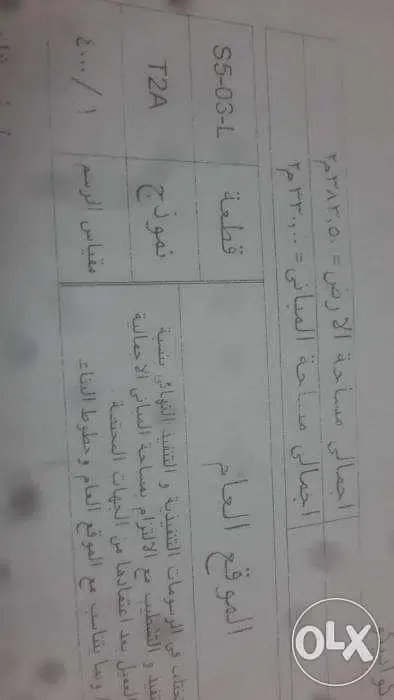 اجمالى مساحة الارض = ٣٨٢.٥٠ م٢
اجمالى مساحة المبانى = ٣٣٠.٠٠ م٢
الموقع العام
قطعة
S5-03-L
نموذج
T2A
مقياس الرسم
١ / ٤٠٠
فى الرسومات التنفيذية و التنفيذ النهائى بنسبة
و التشطيب مع الالتزام بمساحة المبانى الاجمالية
العميل بعد اعتمادها من الجهات المختصة.
بما يتناسب مع الموقع العام وخطوط البناء
OLX